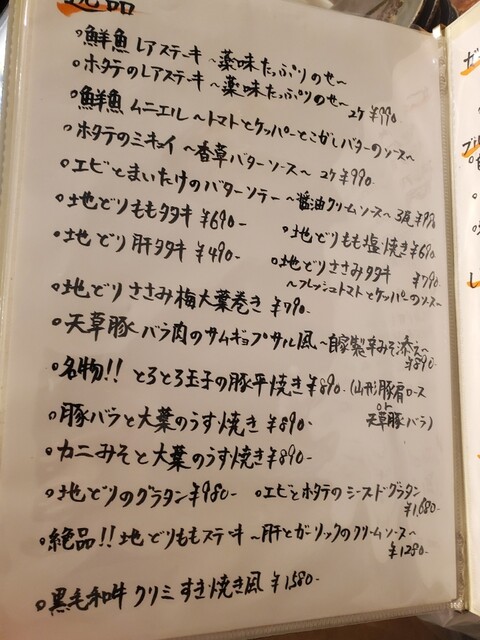 逸品
○鮮魚 レアステーキ 〜薬味たっぷりのせ〜
○ホタテのレアステーキ 〜薬味たっぷりのせ〜
2ケ ¥990
○鮮魚 ムニエル 〜トマトとケッパーとこがしバターのソース〜
○ホタテのミキュイ 〜香草バターソース〜 2ケ ¥990-
○エビとまいたけのバターソテー 〜醤油クリームソース〜 3尾 ¥990
○地どりももタタキ ¥690-
○地どりもも塩焼き ¥690
○地どり肝タタキ ¥490-
○地どりささみタタキ ¥790-
〜フレッシュトマトとケッパーのソース〜
○地どりささみ梅大葉巻き ¥790-
○天草豚バラ肉のサムギョプサル風 〜自家製辛みそ添え〜
¥890-
○名物!! とろとろ玉子の豚平焼き ¥890- (山形豚肩ロース
or
天草豚バラ)
○豚バラと大葉のうす焼き ¥890-
○カニみそと大葉のうす焼き ¥890-
○地どりのグラタン ¥980-
○エビとホタテのシーフードグラタン
¥1,680-
○絶品!! 地どりももステーキ 〜肝とガーリックのクリームソース〜
¥1280-
○黒毛和牛 クリミ すき焼き風 ¥1,580-